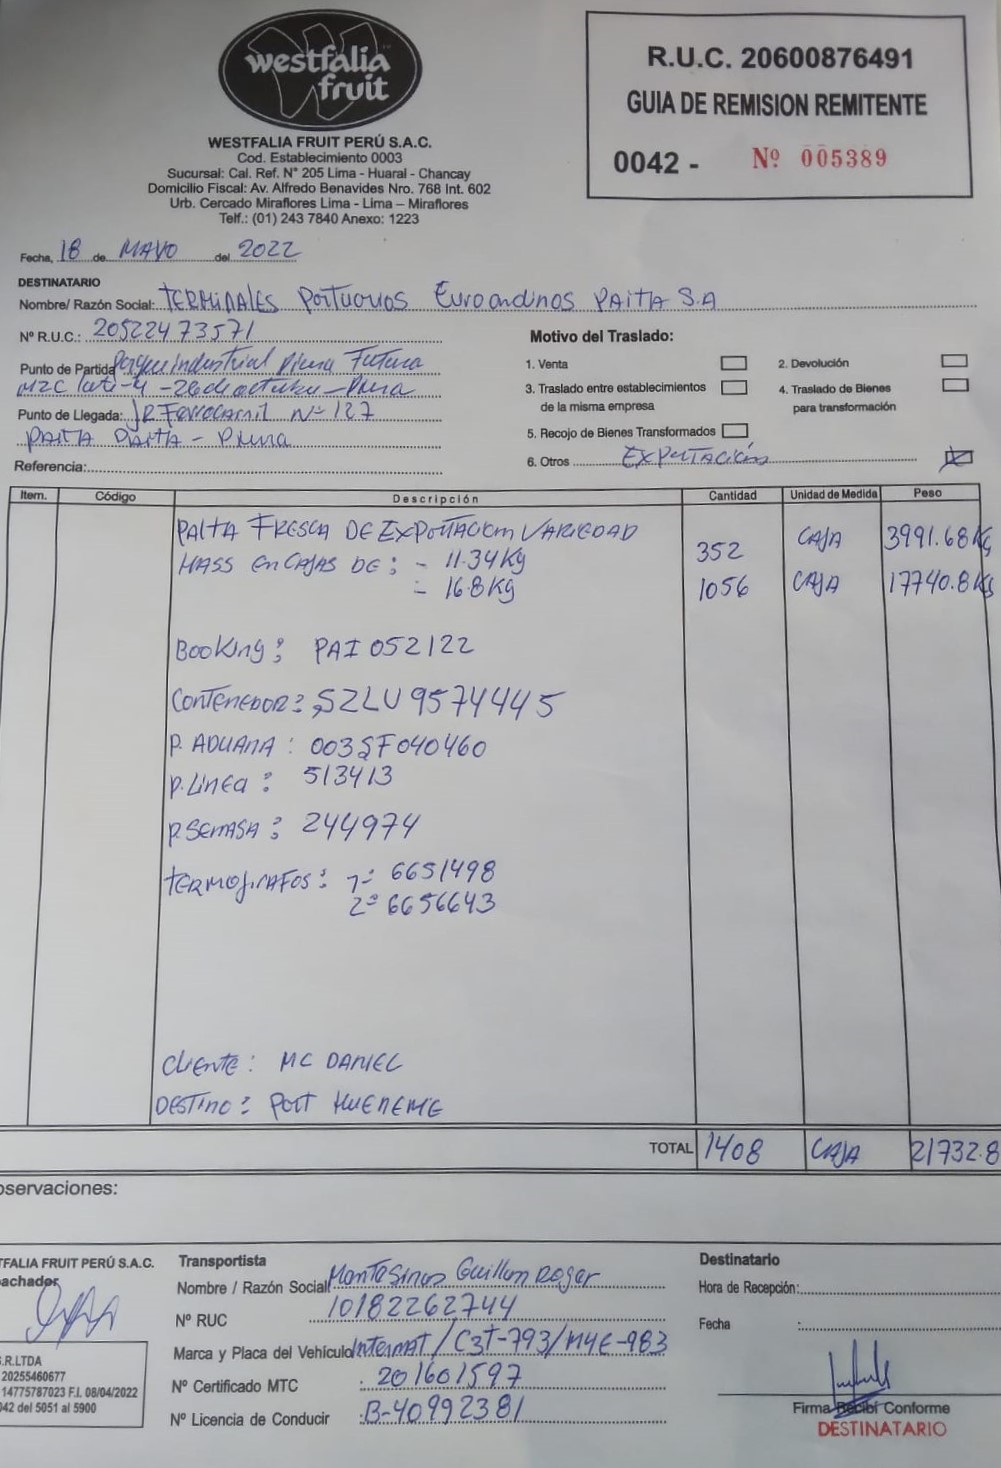 westfalia
fruit
WESTFALIA FRUIT PERÚ S.A.C.
Cod. Establecimiento 0003
Sucursal: Cal. Ref. N° 205 Lima - Huaral - Chancay
Domicilio Fiscal: Av. Alfredo Benavides Nro. 768 Int. 602
Urb. Cercado Miraflores Lima - Lima – Miraflores
Telf.: (01) 243 7840 Anexo: 1223
R.U.C. 20600876491
GUIA DE REMISION REMITENTE
0042 - Nº 005389
Fecha, 18 de MAYO del 2022
DESTINATARIO
Nombre/ Razón Social: TERMINALES PORTUARIOS Euroandinos PAITA S.A
Nº R.U.C.: 20522473571
Punto de Partida Parque industrial Piura Futura
MZC Lote-4 -26 de octubre-Piura
Punto de Llegada: JR Ferrocarril Nº 127
PAITA PAITA - Piura
Referencia:
Motivo del Traslado:
1. Venta
2. Devolución
3. Traslado entre establecimientos
de la misma empresa
4. Traslado de Bienes
para transformación
5. Recojo de Bienes Transformados
6. Otros EXPORTACIÓN
Item. Código Descripción Cantidad Unidad de Medida Peso
PALTA FRESCA DE EXPORTACION VARIEDAD
HASS EN CAJAS DE: - 11.34 Kg 352 CAJA 3991.68 Kg
- 16.8 Kg 1056 CAJA 17740.8 Kg
Booking: PAI 052122
CONTENEDOR: SZLU 9574445
P. ADUANA: 003SF040460
P. Linea: 513413
P. SENASA: 244974
TERMOGRAFOS: 1= 6651498
2= 6656643
CLIENTE: MC DANIEL
DESTINO: PORT HUENEME
TOTAL 1408 CAJA 21732.8
oservaciones:
TFALIA FRUIT PERÚ S.A.C.
achador
.R.LTDA
20255460677
14775787023 F.I. 08/04/2022
042 del 5051 al 5900
Transportista
Nombre / Razón Social Montesinos Guillen Roger
Nº RUC 10182262744
Marca y Placa del Vehículo Internat / C3T-793/M4E-983
Nº Certificado MTC : 201601597
Nº Licencia de Conducir : B-40992381
Destinatario
Hora de Recepción:
Fecha :
Firma Recibí Conforme
DESTINATARIO